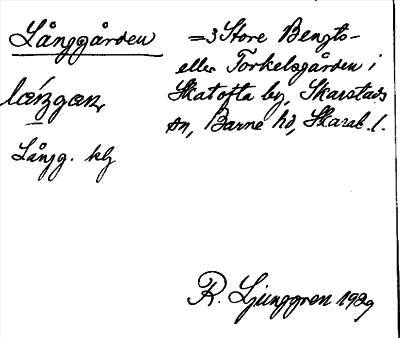 Långgården
=3 Store Bengts-
eller Torkelsgården i
Skatofta by, Skarstads
sn, Barne hd, Skarab. l.
Långg. klg
R. Ljunggren 1929